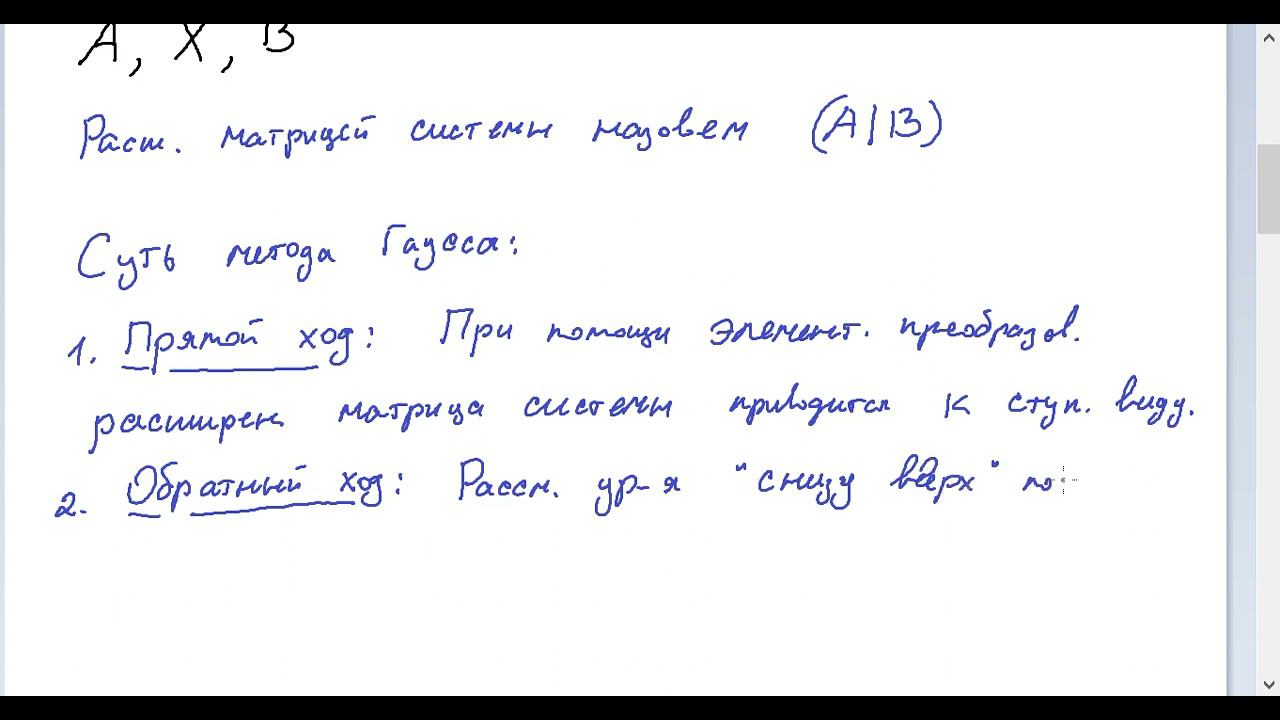 A, X, B
Расш. матрицей системы назовем (A|B)
Суть метода Гаусса:
1. Прямой ход: При помощи элемент. преобразов.
расширен. матрица системы приводится к ступ. виду.
2. Обратный ход: Рассм. ур-я "снизу вверх" по